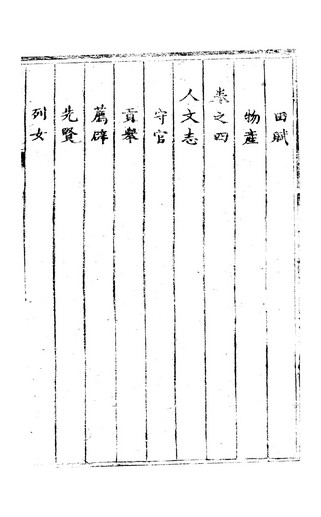 田賦
物產
卷之四
人文志
守官
貢舉
薦辟
先賢
列女